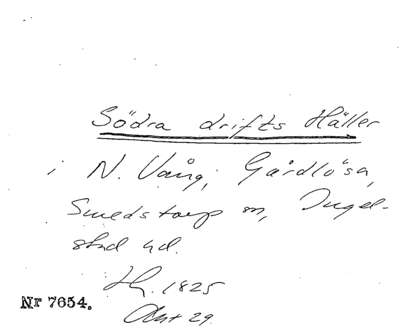 Södra drifts Häller
i N. Vång, Gårdlösa,
Smedstorp sn, Ingel-
stad hd.
1825
Nr 7654.
29